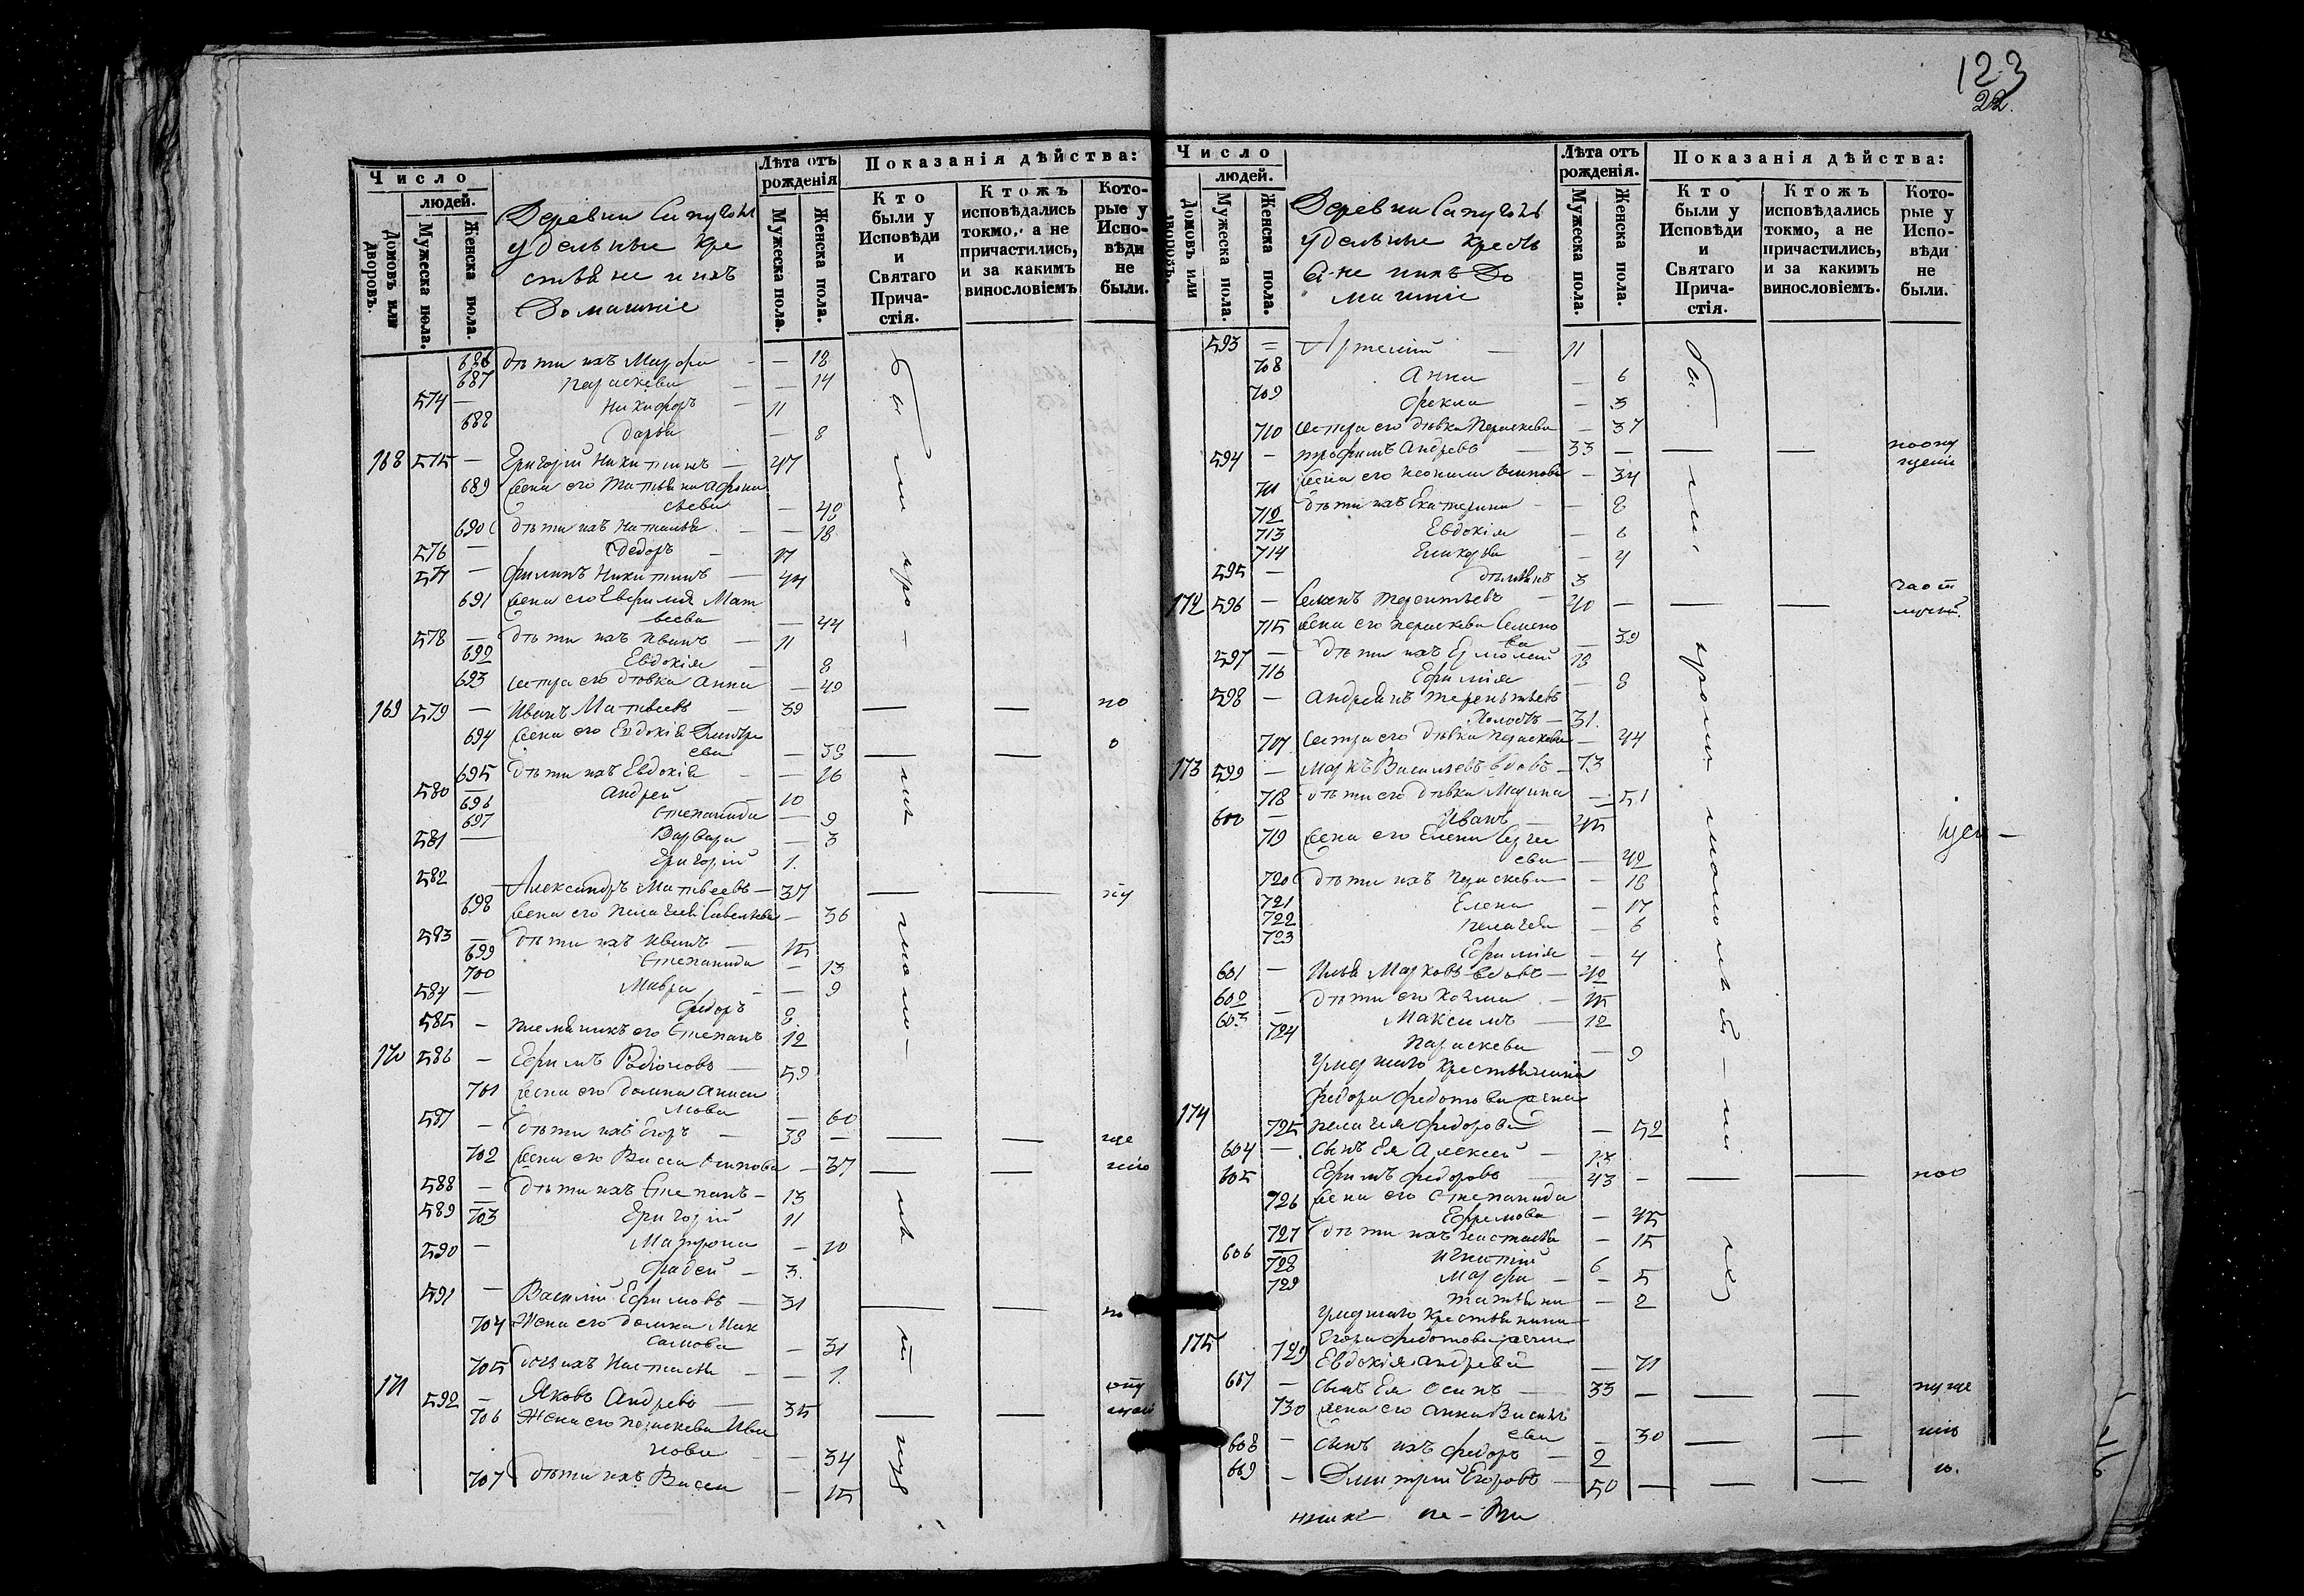 123
22.
Число
людей.
Домовъ или дворовъ.
Мужеска пола.
Женска пола.
Деревни Сапугохъ
удѣльные кре
стьяне и ихъ
Домашніе
Лѣта отъ рожденія
Мужеска пола.
Женска пола.
Показанія дѣйства:
Кто были у Исповѣди и Святаго Причастія.
Ктожъ исповѣдались токмо, а не причастились, и за какимъ винословіемъ
Которые у Исповѣди не были.
686 дѣти ихъ Марфа — 18
687 Параскева — 14
574 — Никифоръ 11
688 Дарья — 8
168 575 — Григорій Никитинъ — 47
689 жена его Татьяна Афона
сьева — 48
690 дѣти ихъ Наталья — 18
576 — Федоръ — 17
577 — Филипъ Никитинъ — 44
691 жена его Евфимія Мат
веева — 44
578 — дѣти ихъ Иванъ — 11
692 Евдокія — 8
693 сестра его дѣвка Анна — 49
169 579 — Иванъ Матвеевъ — 39 — — по
694 жена его Евдокія Дмитре
ева — 39 — — о
695 дѣти ихъ Евдокія — 16
580 — Андрей 10
696 Степанида — 9
697 Варвара — 3
581 — Григорій 1.
582 Александръ Матвеевъ — 37 — — пу
698 жена его Пелагея Савельева — 36
583 — дѣти ихъ Иванъ — 15
699 Степанида — 13
700 Мавра — 9
584 — Федоръ 8
585 — племянникъ его Степанъ 12
170 586 — Ефимъ Родіоновъ — 59
701 жена его Домна Аниси
мова — 60
587 — дѣти ихъ Егоръ — 38 — — — ще
702 жена его Васса Осипова — 37 — — нію
588 — дѣти ихъ Степанъ — 13
589 Григорій 11
703 Матрона — 10
590 — Фадей — 3.
591 — Василій Ефимовъ — 31 — — по
704 Жена его Домна Мак
симова — 31
705 дочь ихъ Настасья — 1.
171 592 — Яковъ Андреевъ — 35 — — опу
706 Жена его Параскева Ива
нова — 34
707 дѣти ихъ Васса — 15
Число
людей.
Домовъ или дворовъ.
Мужеска пола.
Женска пола.
Деревни Сапугохъ
удѣльные кресть
яне и ихъ До
машніе
Лѣта отъ рожденія.
Мужеска пола.
Женска пола.
Показанія дѣйства:
Кто были у Исповѣди и Святаго Причастія.
Ктожъ исповѣдались токмо, а не причастились, и за какимъ винословіемъ.
Которые у Исповѣди не были.
593 = Артемій — 11
708 Анна — 6
709 Фекла — 3
710 сестра его дѣвка Параскева — 37
594 — Трофимъ Андреевъ — 33 — — — по опу
щенію
711 жена его Неонила Осипова — 34
712 дѣти ихъ Екатерина — 8
713 Евдокія — 6
714 — 4
595 — 3
172 596 — Семенъ Терентьевъ — 40 — — —
715 жена его Параскева Семено
ва — 39
597 — дѣти ихъ Ермолай 18
716 Ефимія — 8
598 — Андреянъ Терентьевъ
Холостъ — 31.
717 сестра его дѣвка Параскева — 44
173 599 — Маркъ Васильевъ вдовъ — 73
718 дѣти его дѣвка Марина — 51
600 — Иванъ — 45
719 жена его Елена Сергее
ева — 42
720 дѣти ихъ Параскева — 18
721 Елена — 17
722 Пелагея — 6
723 Ефимія — 4
601 — Илья Марковъ вдовъ — 40
602 дѣти его Козма — 15
603 — Максимъ — 12
724 Параскева — 9
Умершаго крестьянина
Федора Федотова жена
174 725 Пелагея Федорова — 52
604 — сынъ Ея Алексей — 13
605 Ефимъ Федоровъ — 43 — — — поо
726 жена его Степанида
Ефремова — 45
727 дѣти ихъ Настасья — 15
606 Игнатій 6
728 Марфа — 5
729 Татьяна — 2
Умершаго крестьянина
Егора Федотова жена
175 729 Евдокія Андреева — 71
607 — сынъ Ея Осипъ — 33 — — — пуще
730 жена его Анна Василь
ева — 30 — — нію
608 — сынъ ихъ Федоръ — 2
609 — Дмитрій Егоровъ — 50 — — — ю.